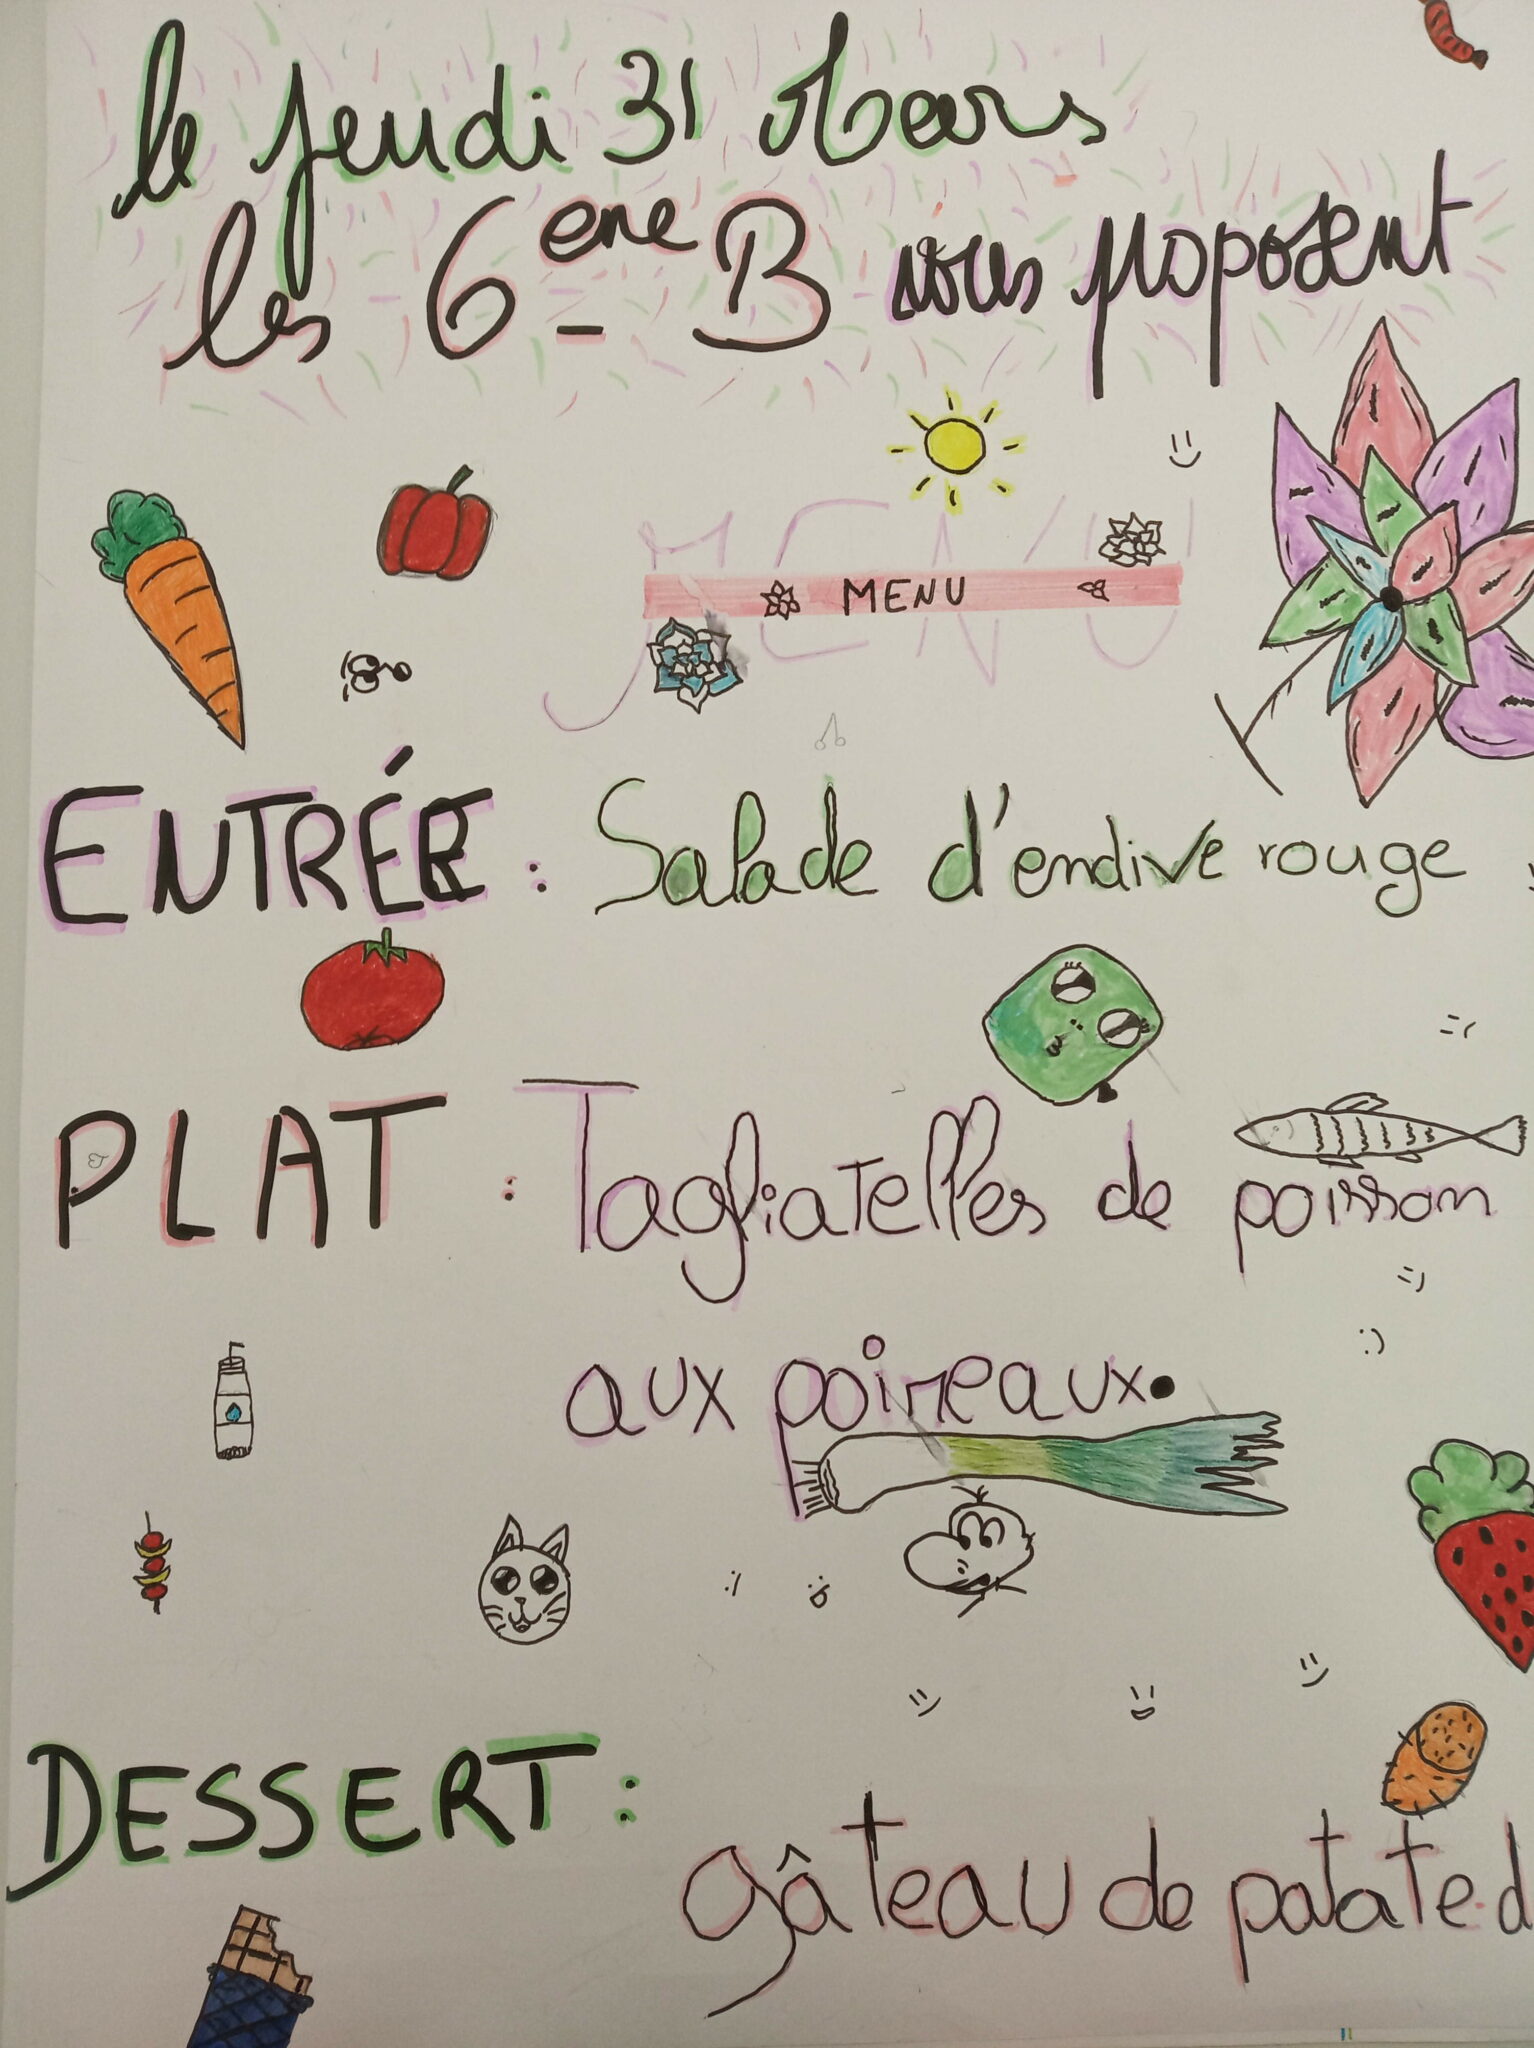 le jeudi 31 Mars
les 6ème-B vous proposent
MENU
MENU
ENTRÉE : Salade d'endive rouge
PLAT : Tagliatelles de poisson
aux poireaux.
DESSERT :
gâteau de patate d